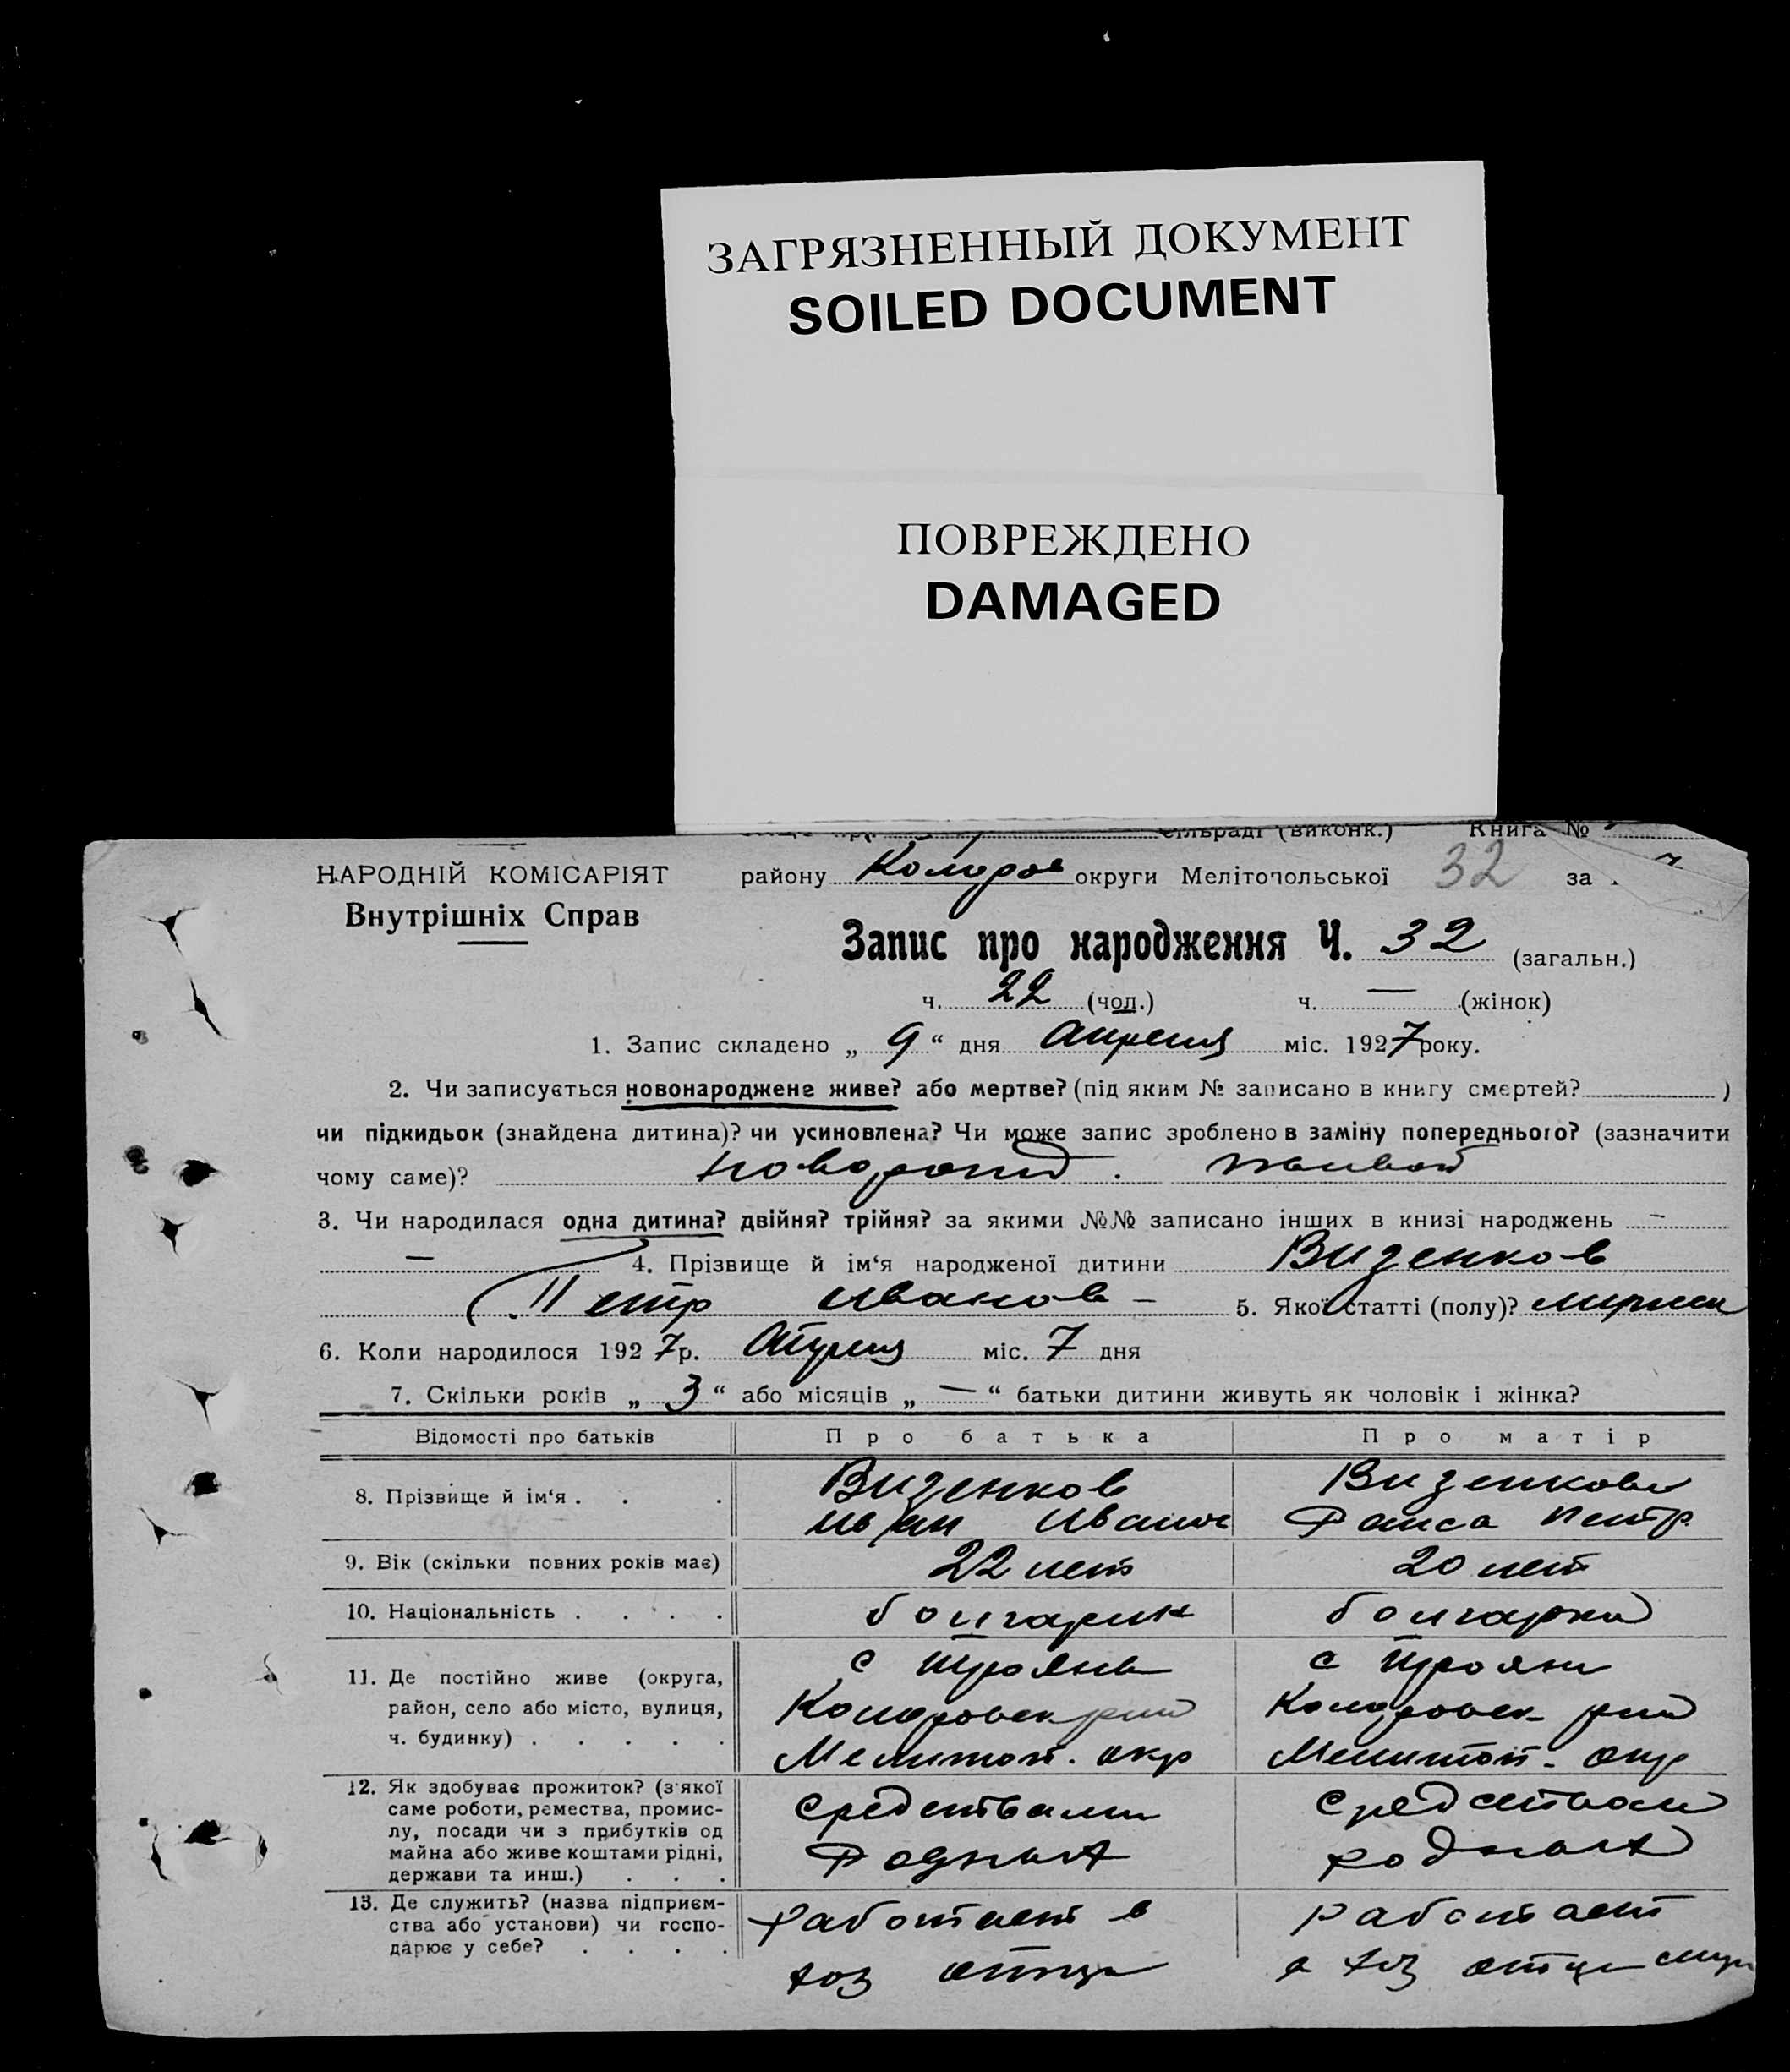 ЗАГРЯЗНЕННЫЙ ДОКУМЕНТ
SOILED DOCUMENT
ПОВРЕЖДЕНО
DAMAGED
сільраді (виконк.) Книга №
НАРОДНІЙ КОМІСАРІЯТ
Внутрішніх Справ
району округи Мелітопольської 32 за
Запис про народження Ч. 32 (загальн.)
ч. 22 (чол.) ч. — (жінок)
1. Запис складено „ 9 “ дня Апреля міс. 1927 року.
2. Чи записується новонароджене живе? або мертве? (під яким № записано в книгу смертей? )
чи підкидьок (знайдена дитина)? чи усиновлена? Чи може запис зроблено в заміну попереднього? (зазначити
чому саме)? живой
3. Чи народилася одна дитина? двійня? трійня? за якими №№ записано інших в книзі народжень —
— 4. Прізвище й ім‘я народженої дитини Визенков
Петр Иванов — 5. Якої статті (полу)?
6. Коли народилося 1927 р. Апреля міс. 7 дня
7. Скільки років „ 3 “ або місяців „ — “ батьки дитини живуть як чоловік і жінка?
Відомості про батьків Про батька Про матір
8. Прізвище й ім‘я . . . Визенков Визенкова
Иван Иванов Раиса Петр.
9. Вік (скільки повних років має) 22 лет 20 лет
10. Національність . . . . болгарин болгарка
11. Де постійно живе (округа, район, село або місто, вулиця, ч. будинку) . . . . .
с Трояни с Трояни
Мелитоп. окр Мелитоп. окр
12. Як здобуває прожиток? (з якої
саме роботи, ремества, промис-
лу, посади чи з прибутків од
майна або живе коштами рідні,
держави та инш.) . . .
средствами средствам
родных родных
13. Де служить? (назва підприєм-
ства або установи) чи госпо-
дарює у себе? . . . .
работает в работает
хоз отца в хоз отца